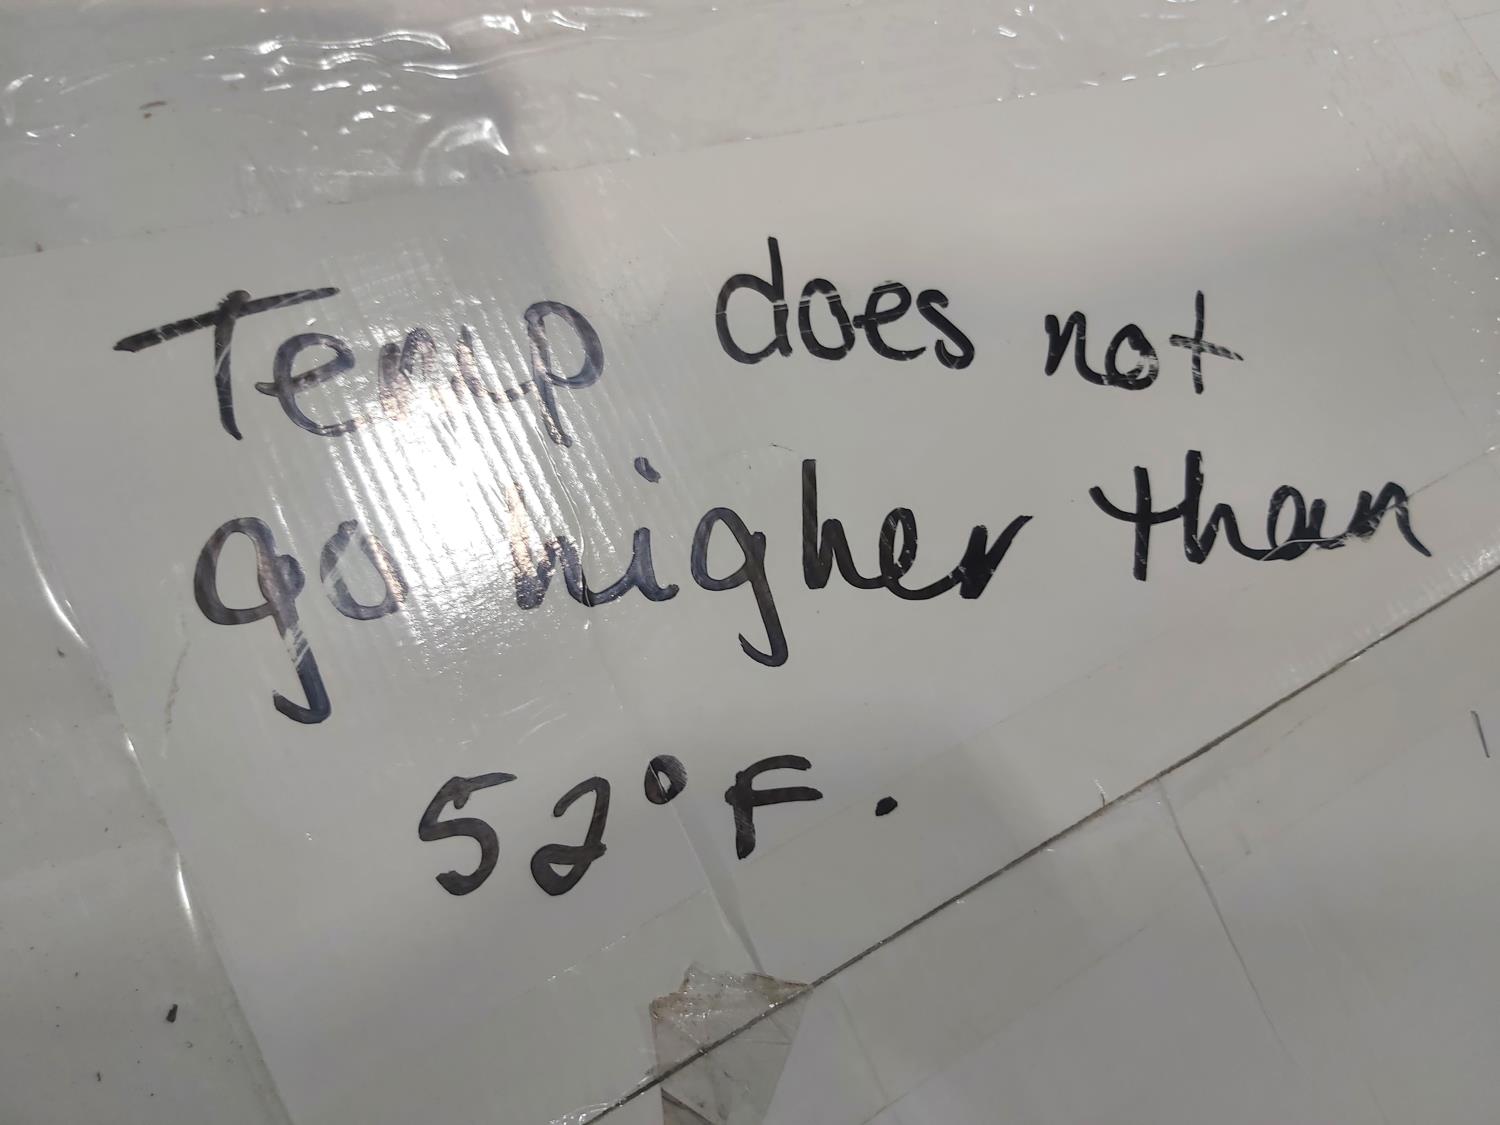 Temp does not
go higher than
52°F.